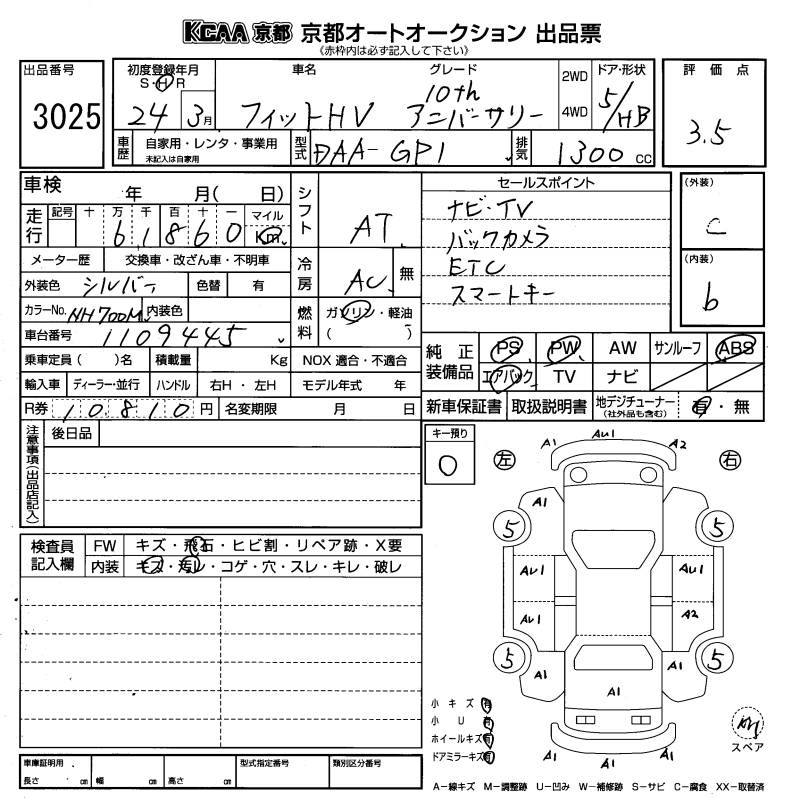 KCAA 京都 京都オートオークション 出品票
(赤枠内は必ず記入して下さい)
出品番号
3025
初度登録年月
S・H R
24 3月
車名
フィットHV
グレード
10th
アニバーサリー
2WD
4WD
ドア・形状
5/HB
評価点
3.5
車歴
自家用・レンタ・事業用
未記入は自家用
型式
DAA-GP1
排気
1300 cc
車検
年 月( 日)
シフト
AT
走行
記号 十 万 千 百 十 一 マイル
6 1 8 6 0 Km
メーター歴 交換車・改ざん車・不明車
冷房
AC 無
外装色 シルバー 色替 有
カラーNo. NH700M 内装色
燃料
ガソリン・軽油
( )
車台番号 1109445
乗車定員( )名 積載量 Kg NOX 適合・不適合
輸入車 ディーラー・並行 ハンドル 右H・左H モデル年式 年
R券 10810 円 名変期限 月 日
セールスポイント
ナビ・TV
バックカメラ
ETC
スマートキー
(外装)
C
(内装)
b
純正装備品
PS PW AW サンルーフ ABS
エアバック TV ナビ
新車保証書 取扱説明書 地デジチューナー(社外品も含む) 有・無
注意事項(出品店記入)
後日品
キー預り
0
検査員記入欄
FW キズ・飛石・ヒビ割・リペア跡・X要
内装 キズ・汚レ・コゲ・穴・スレ・キレ・破レ
左 A1 AU1 A2 右
A1 A1
5 5
AU1 AU1
AU1 A2
5 5
A1 A1
A1
A1 A1 A1
小キズ 有
小U 有
ホイールキズ 有
ドアミラーキズ 有
スペア
車庫証明用
長さ cm 幅 cm 高さ cm
型式指定番号
類別区分番号
A−線キズ M−調整跡 U−凹み W−補修跡 S−サビ C−腐食 XX−取替済